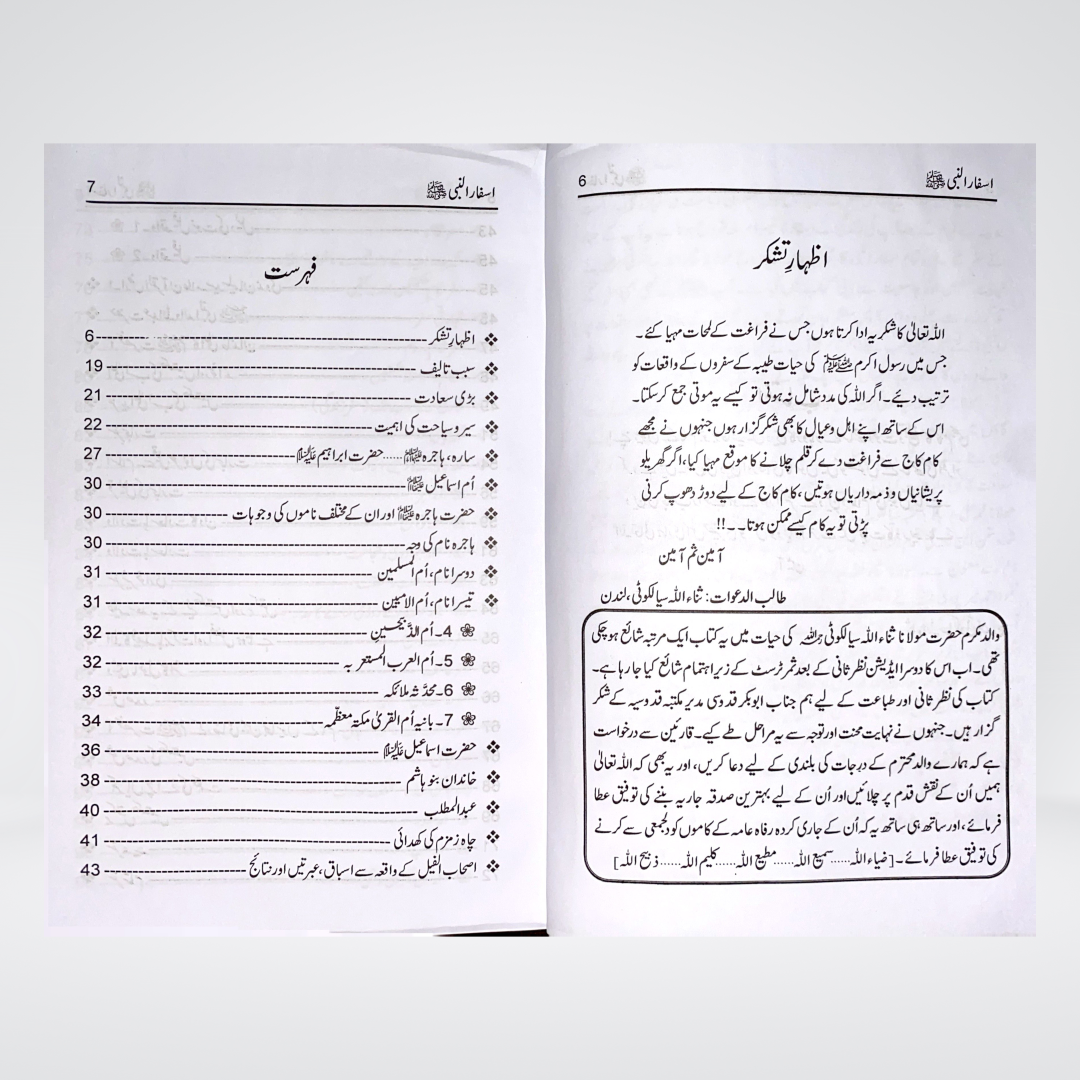 اسفار النبی ﷺ 6
اظہارِ تشکر
اللہ تعالیٰ کا شکریہ ادا کرتا ہوں جس نے فراغت کے لمحات مہیا کئے۔
جس میں رسول اکرم ﷺ کی حیات طیبہ کے سفروں کے واقعات کو
ترتیب دیئے۔ اگر اللہ کی مدد شامل نہ ہوتی تو کیسے یہ موتی جمع کرسکتا۔
اس کے ساتھ اپنے اہل وعیال کا بھی شکر گزار ہوں جنہوں نے مجھے
کام کاج سے فراغت دے کر قلم چلانے کا موقع مہیا کیا، اگر گھریلو
پریشانیاں و ذمہ داریاں ہوتیں، کام کاج کے لیے دوڑ دھوپ کرنی
پڑتی تو یہ کام کیسے ممکن ہوتا۔۔!!
آمین ثم آمین
طالب الدعوات: ثناء اللہ سیالکوٹی، لندن
والد مکرم حضرت مولانا ثناء اللہ سیالکوٹی رحمہ اللہ کی حیات میں یہ کتاب ایک مرتبہ شائع ہوچکی
تھی۔ اب اس کا دوسرا ایڈیشن نظر ثانی کے بعد ثمر ٹرسٹ کے زیر اہتمام شائع کیا جا رہا ہے۔
کتاب کی نظر ثانی اور طباعت کے لیے ہم جناب ابوبکر قدوسی مدیر مکتبہ قدوسیہ کے شکر
گزار ہیں۔ جنہوں نے نہایت محنت اور توجہ سے یہ مراحل طے کیے۔ قارئین سے درخواست
ہے کہ ہمارے والد محترم کے درجات کی بلندی کے لیے دعا کریں، اور یہ بھی کہ اللہ تعالیٰ
ہمیں اُن کے نقش قدم پر چلائیں اور اُن کے لیے بہترین صدقہ جاریہ بننے کی توفیق عطا
فرمائے، اور ساتھ ہی ساتھ یہ کہ اُن کے جاری کردہ رفاہ عامہ کے کاموں کو دلجمعی سے کرنے
کی توفیق عطا فرمائے۔ [ضیاء اللہ......سمیع اللہ......مطیع اللہ......کلیم اللہ......ذبیح اللہ]
اسفار النبی ﷺ 7
فہرست
❖ اظہارِ تشکر 6
❖ سبب تالیف 19
❖ بڑی سعادت 21
❖ سیر و سیاحت کی اہمیت 22
❖ سارہ، ہاجرہ علیہا السلام......حضرت ابراہیم علیہ السلام 27
❖ اُم اسماعیل علیہا السلام 30
❖ حضرت ہاجرہ علیہا السلام اور ان کے مختلف ناموں کی وجوہات 30
❖ ہاجرہ نام کی وجہ 30
❖ دوسرا نام، اُم المسلمین 31
❖ تیسرا نام، اُم الامیین 31
❀ 4۔ اُم الذَّبِیْحَینِ 32
❀ 5۔ اُم العرب المستعربہ 32
❀ 6۔ محدَّثہ ملائکہ 33
❀ 7۔ بانیہ اُم القریٰ مکۃ معظّمہ 34
❖ حضرت اسماعیل علیہ السلام 36
❖ خاندان بنو ہاشم 38
❖ عبدالمطلب 40
❖ چاہ زمزم کی کھدائی 41
❖ اصحاب الفیل کے واقعہ سے اسباق، عبرتیں اور نتائج 43